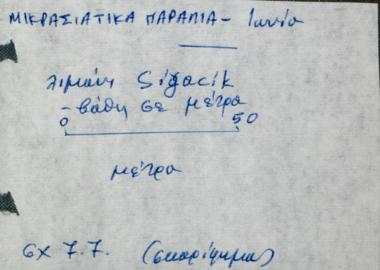 ΜΙΚΡΑΣΙΑΤΙΚΑ ΠΑΡΑΛΙΑ - Ιωνία
λιμάνι Siğacik
- βάθη σε μέτρα
0 50
μέτρα
σχ 7.7. (σκαρίφημα)